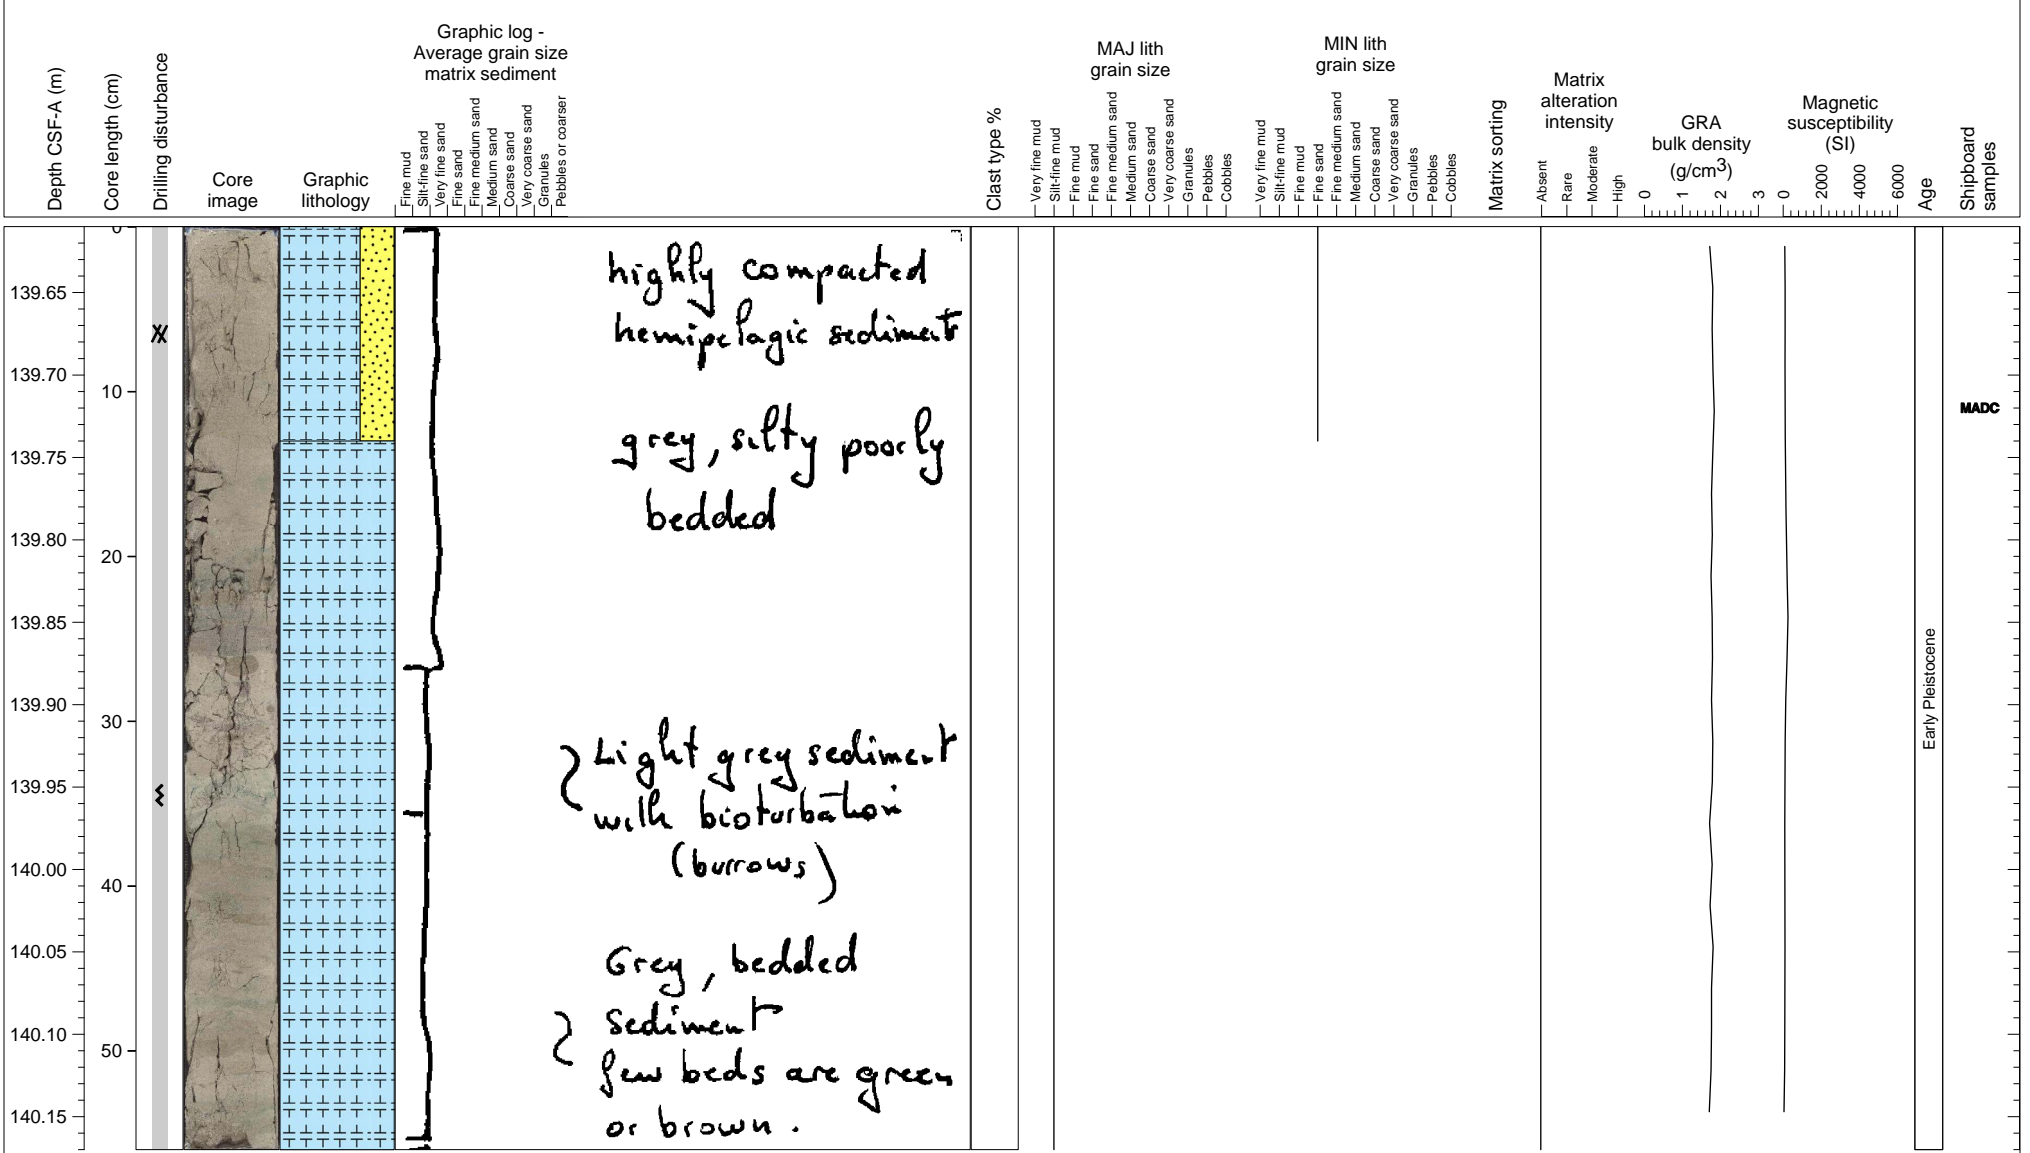 Depth CSF-A (m)
Core length (cm)
Drilling disturbance
Core
image
Graphic
lithology
Graphic log -
Average grain size
matrix sediment
Fine mud
Silt-fine sand
Very fine sand
Fine sand
Fine medium sand
Medium sand
Coarse sand
Very coarse sand
Granules
Pebbles or coarser
Clast type %
MAJ lith
grain size
Very fine mud
Silt-fine mud
Fine mud
Fine sand
Fine medium sand
Medium sand
Coarse sand
Very coarse sand
Granules
Pebbles
Cobbles
MIN lith
grain size
Very fine mud
Silt-fine mud
Fine mud
Fine sand
Fine medium sand
Medium sand
Coarse sand
Very coarse sand
Granules
Pebbles
Cobbles
Matrix sorting
Matrix
alteration
intensity
Absent
Rare
Moderate
High
GRA
bulk density
(g/cm3)
0
1
2
3
Magnetic
susceptibility
(SI)
0
2000
4000
6000
Age
Shipboard
samples
139.65
139.70
139.75
139.80
139.85
139.90
139.95
140.00
140.05
140.10
140.15
0
10
20
30
40
50
highly compacted
hemipelagic sediment
grey, silty poorly
bedded
Light grey sediment
with bioturbation
(burrows)
Grey, bedded
Sediment
few beds are green
or brown.
Early Pleistocene
MADC